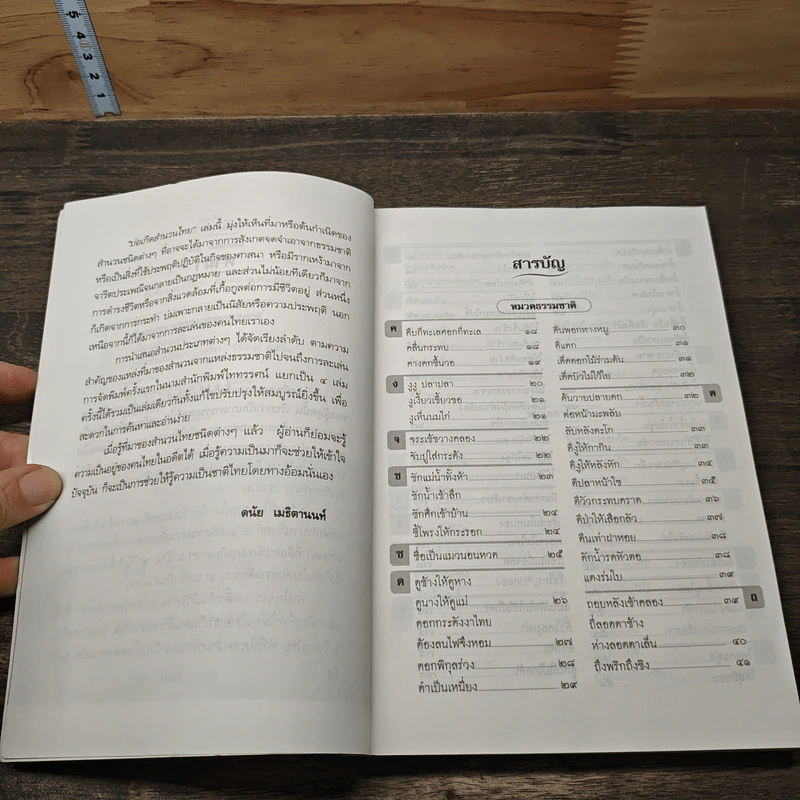 5
4
3
2
1
"บ่อเกิดสำนวนไทย" เล่มนี้ มุ่งให้เห็นที่มาหรือต้นกำเนิดของ
สำนวนชนิดต่างๆ ที่อาจจะได้มาจากการสังเกตจดจำเอาจากธรรมชาติ
หรือเป็นสิ่งที่ใช้ประพฤติปฏิบัติในกิจของศาสนา หรือมีรากเหง้ามาจาก
จารีตประเพณีจนกลายเป็นกฎหมาย และส่วนไม่น้อยทีเดียวก็มาจาก
การดำรงชีวิตหรือจากสิ่งแวดล้อมที่เกื้อกูลต่อการมีชีวิตอยู่ ส่วนหนึ่ง
ก็เกิดจากการกระทำ บ่มเพาะกลายเป็นนิสัยหรือความประพฤติ นอก
เหนือจากนี้ก็ได้มาจากการละเล่นของคนไทยเราเอง
การนำเสนอสำนวนประเภทต่างๆ ได้จัดเรียงลำดับ ตามความ
สำคัญของแหล่งที่มาของสำนวนจากแหล่งธรรมชาติไปจนถึงการละเล่น
การจัดพิมพ์ครั้งแรกในนามสำนักพิมพ์ไททรรศน์ แยกเป็น ๔ เล่ม
ครั้งนี้ได้รวมเป็นเล่มเดียวกันทั้งแก้ไขปรับปรุงให้สมบูรณ์ยิ่งขึ้น เพื่อ
สะดวกในการค้นหาและอ่านง่าย
เมื่อรู้ที่มาของสำนวนไทยชนิดต่างๆ แล้ว ผู้อ่านก็ย่อมจะรู้
ความเป็นอยู่ของคนไทยในอดีตได้ เมื่อรู้ความเป็นมาก็จะช่วยให้เข้าใจ
ปัจจุบัน ก็จะเป็นการช่วยให้รู้ความเป็นชาติไทยโดยทางอ้อมนั่นเอง
ดนัย เมธิตานนท์
สารบัญ
หมวดธรรมชาติ
ค คืบก็ทะเลศอกก็ทะเล ๑๘
คลื่นกระทบ ๑๘
คางคกขึ้นวอ ๑๙
ง งูงู ปลาปลา ๒๐
งูเงี้ยวเขี้ยวขอ ๒๑
งูเห็นนมไก่ ๒๑
จ จระเข้ขวางคลอง ๒๒
จับปูใส่กระด้ง ๒๒
ช ชักแม่น้ำทั้งห้า ๒๓
ชักน้ำเข้าลึก
ชักศึกเข้าบ้าน ๒๔
ชี้โพรงให้กระรอก ๒๔
ซ ซื่อเป็นแมวนอนหวด ๒๕
ด ดูช้างให้ดูหาง
ดูนางให้ดูแม่ ๒๖
ดอกกระดังงาไทย
ต้องลนไฟจึงหอม ๒๗
ดอกพิกุลร่วง ๒๘
ดำเป็นเหนี่ยง ๒๙
ดินพอกหางหมู ๓๐
ดีแตก ๓๑
เด็ดดอกไม้ร่วมต้น ๓๑
เด็ดบัวไม่ไว้ใย ๓๒
ต ต้นวายปลายดก ๓๒
ต่อหน้ามะพลับ
ลับหลังตะโก ๓๓
ตีงูให้กากิน ๓๓
ตีงูให้หลังหัก ๓๔
ตีปลาหน้าไซ ๓๕
ตีวัวกระทบคราด ๓๖
ตีป่าให้เสือกลัว ๓๗
ตีนเท่าฝาหอย ๓๘
ตักน้ำรดหัวตอ ๓๘
แตงร่มใบ ๓๙
ถ ถอยหลังเข้าคลอง ๓๙
ถี่ลอดตาช้าง
ห่างลอดตาเล็น ๔๐
ถึงพริกถึงขิง ๔๑